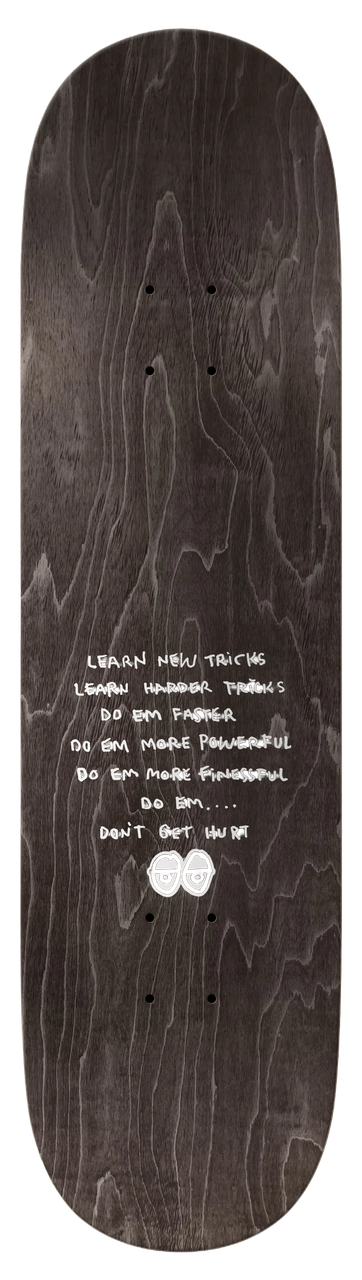 LEARN NEW TRICKS
LEARN HARDER TRICKS
DO EM FASTER
DO EM MORE POWERFUL
DO EM MORE FINESSFUL
DO EM....
DON'T GET HURT